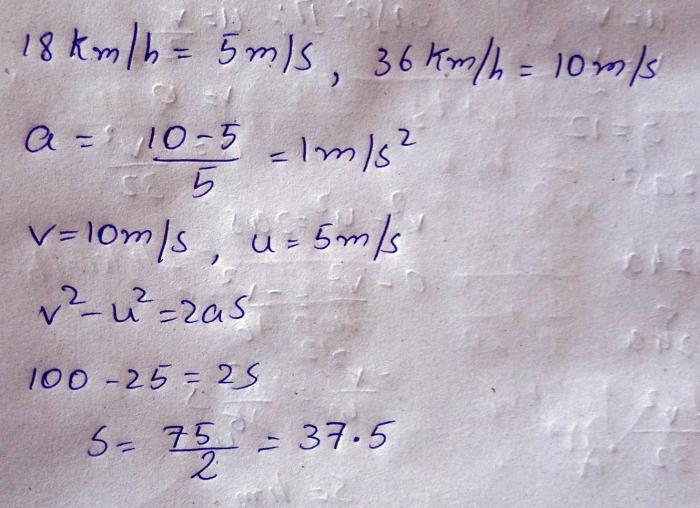 18 Km/h = 5m/s, 36 Km/h = 10m/s
a = 10-5/5 = 1m/s²
v=10m/s, u=5m/s
v²-u²=2as
100-25=2s
s= 75/2 = 37.5